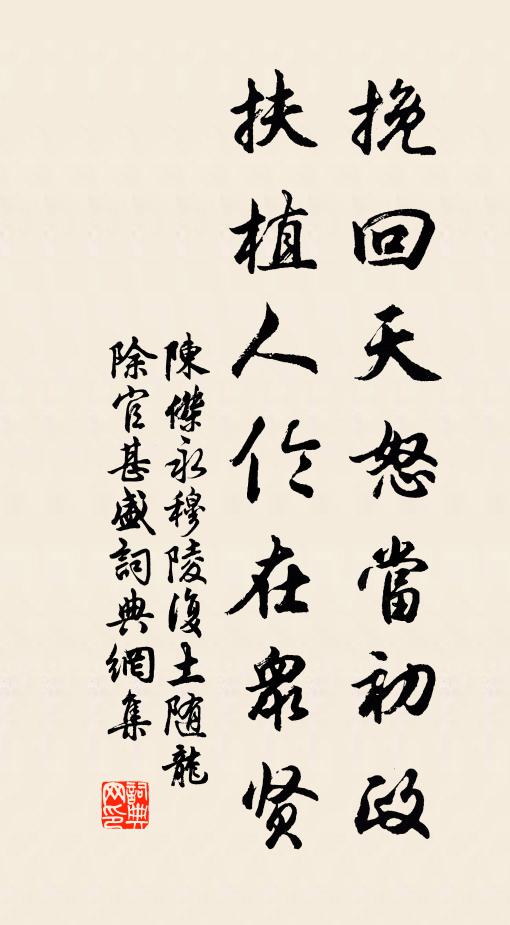 挽回天怒當初政
扶植人伦在眾贤
陳傑永穆陵復土随龍
除官甚盛詞典網集
詞典网印